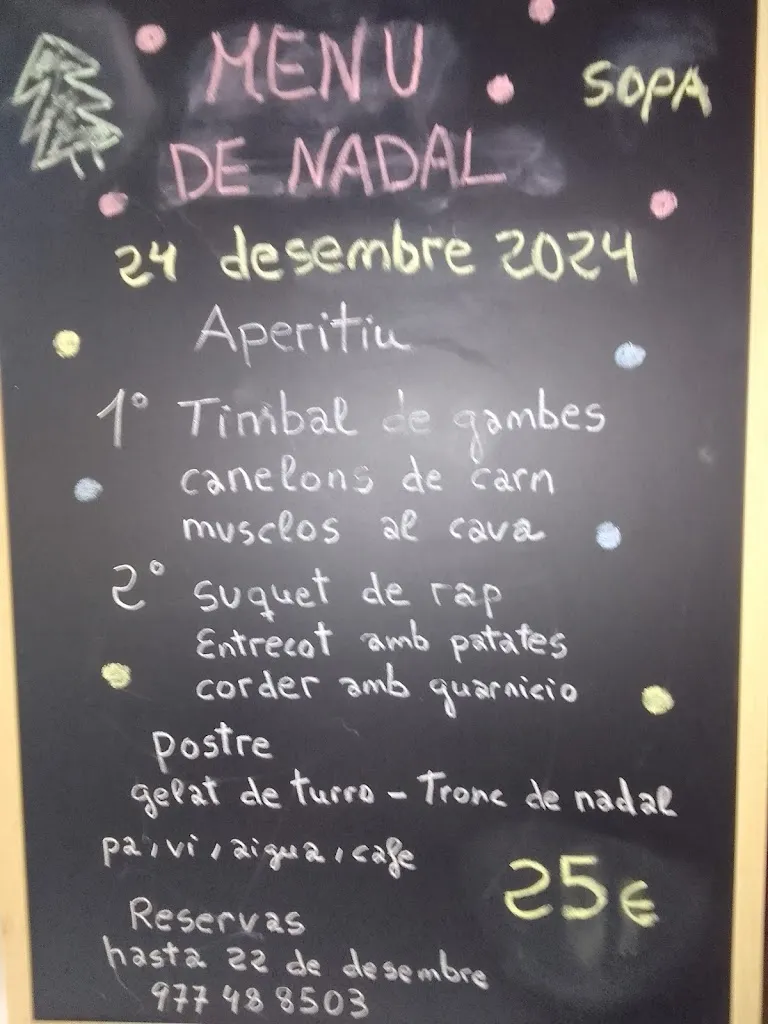 MENU
SOPA
DE NADAL
24 desembre 2024
Aperitiu
1º Timbal de gambes
canelons de carn
musclos al cava
2º suquet de rap
Entrecot amb patates
corder amb guarnicio
postre
gelat de turro - Tronc de nadal
pa, vi, aigua, cafe
25€
Reservas
hasta 22 de desembre
977 48 8503